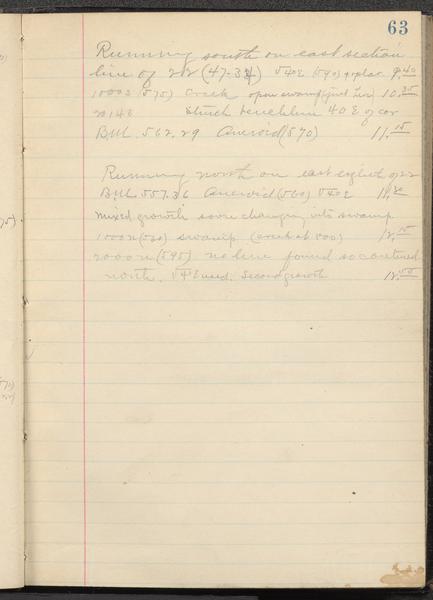 63
Running south on east section
line of 22 (47-34) V40E (590) 9.40
1000 S (575) Creek open swamp 10.35
2014 S Struck benchline 40 E of cor
B.M. 562.29 Aneroid (570) 11.15
Running north on east of 22
B.M. 557.36 Aneroid (560) V40E 11.20
Mixed growth soon changing into swamp
1000 N (580) swamp (creek at 800) 12.15
2000 N (595) no line found so continued
north. V4°E used. Second growth 12.50
75)